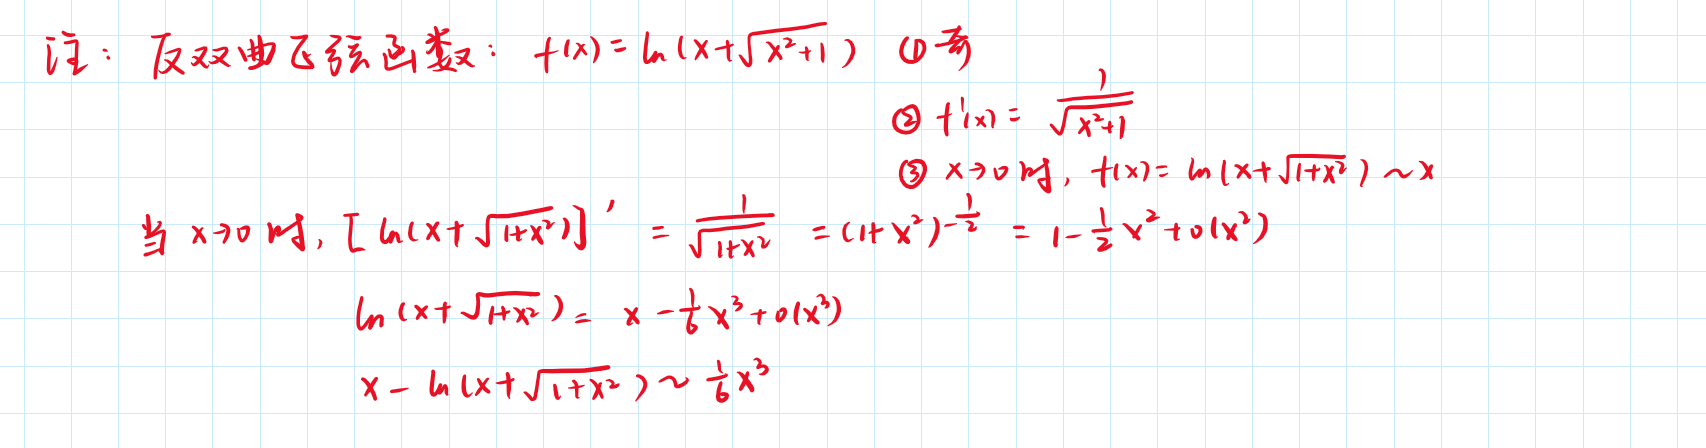 注: 反双曲正弦函数: f(x) = ln(x+√(x²+1)) ① 奇
② f'(x) = 1/√(x²+1)
③ x→0时, f(x) = ln(x+√(1+x²)) ~ x
当 x→0 时, [ln(x+√(1+x²))]' = 1/√(1+x²) = (1+x²)^(-1/2) = 1-1/2 x²+o(x²)
ln(x+√(1+x²)) = x - 1/6 x³+o(x³)
x - ln(x+√(1+x²)) ~ 1/6 x³